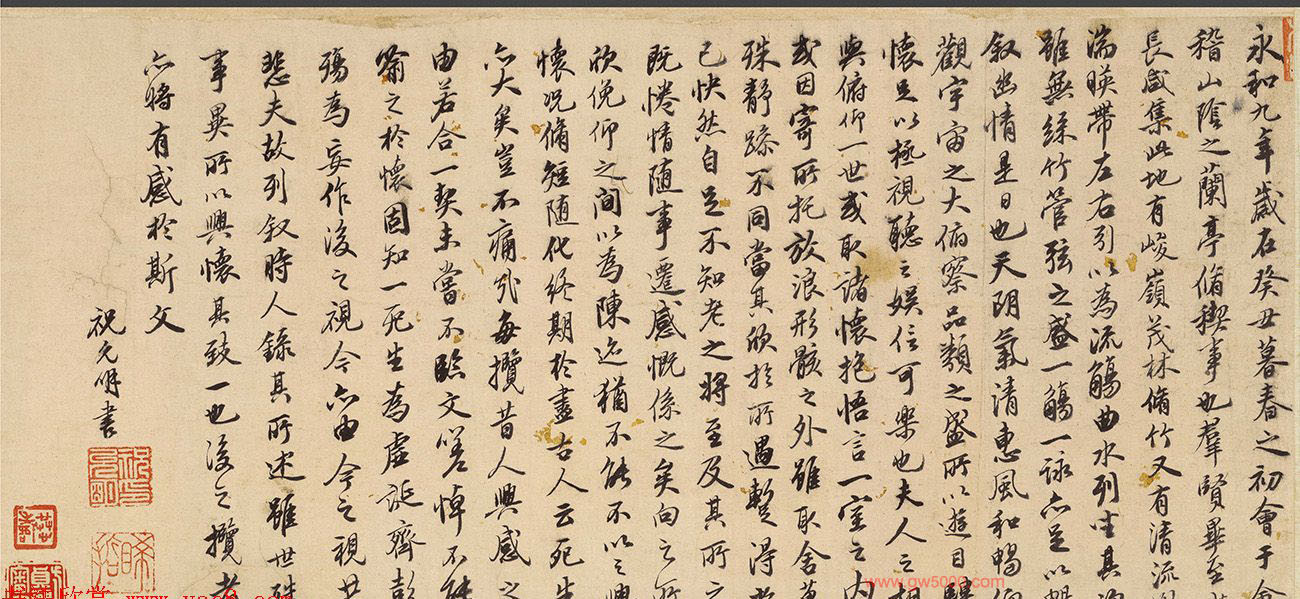 永和九年歲在癸丑暮春之初會于會
稽山陰之蘭亭脩稧事也羣賢畢至
長咸集此地有峻嶺茂林脩竹又有清流
湍暎帶左右引以為流觴曲水列坐其次
雖無絲竹管弦之盛一觴一詠亦足以暢
叙幽情是日也天朗氣清惠風和暢仰
觀宇宙之大俯察品類之盛所以遊目騁
懷足以極視聽之娛信可樂也夫人之相
與俯仰一世或取諸懷抱悟言一室之內
或因寄所托放浪形骸之外雖取舍萬
殊靜躁不同當其欣於所遇暫得於
己快然自足不知老之將至及其所之
既惓情随事遷感慨係之矣向之所
欣俛仰之間以為陳迹猶不能不以之興
懷況脩短随化終期於盡古人云死生
亦大矣豈不痛哉每攬昔人興感之
由若合一契未嘗不臨文嗟悼不能
喻之於懷固知一死生為虛誕齊彭
殤為妄作後之視今亦由今之視昔
悲夫故列叙時人錄其所述雖世殊
事異所以興懷其致一也後之攬者
亦將有感於斯文
祝允明書
www.gw5000.com